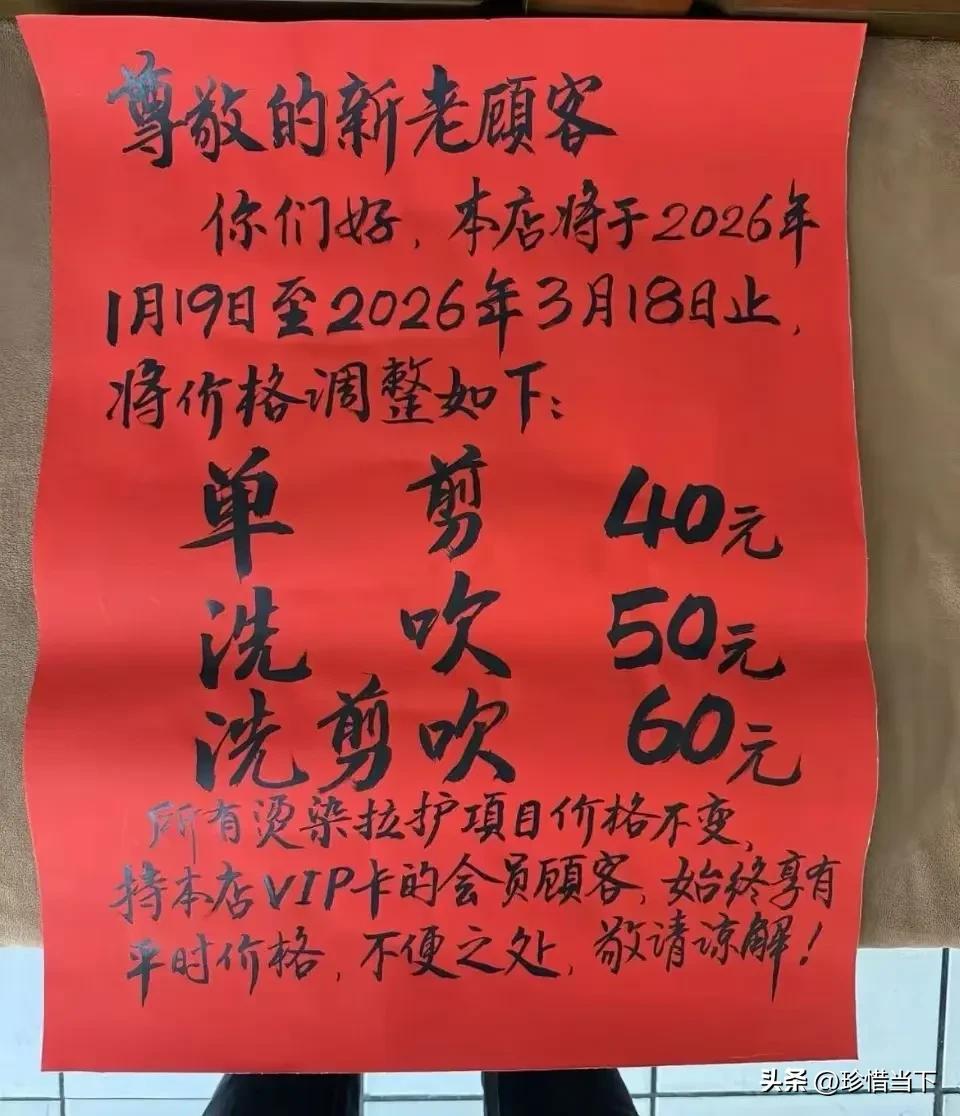 尊敬的新老顧客
你们好，本店将于2026年
1月19日至2026年3月18日止，
将价格调整如下：
单 剪 40元
洗 吹 50元
洗剪吹 60元
所有烫染拉护项目价格不变，
持本店VIP卡的会员顧客，始终享有
平时价格，不便之处，敬请谅解！
头条 @珍惜当下